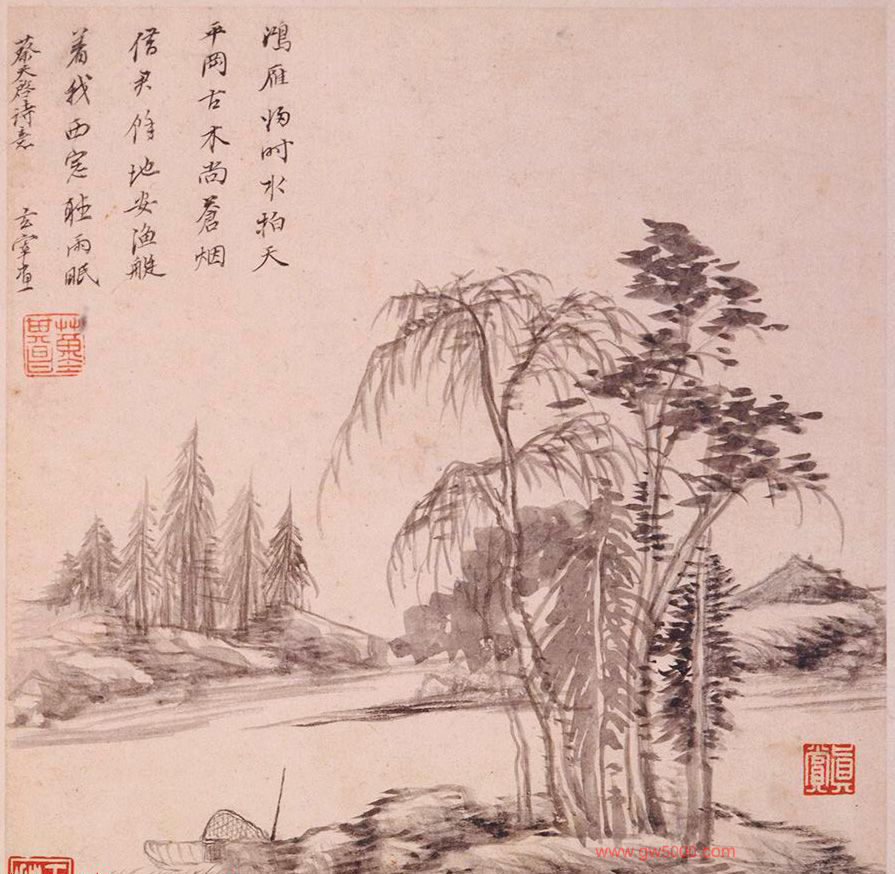 鴻雁归时水拍天
平岡古木尚蒼烟
借君餘地安漁艇
着我西窓聽雨眠
蔡天啓詩意 玄宰画
董其昌
真賞
www.gw5000.com